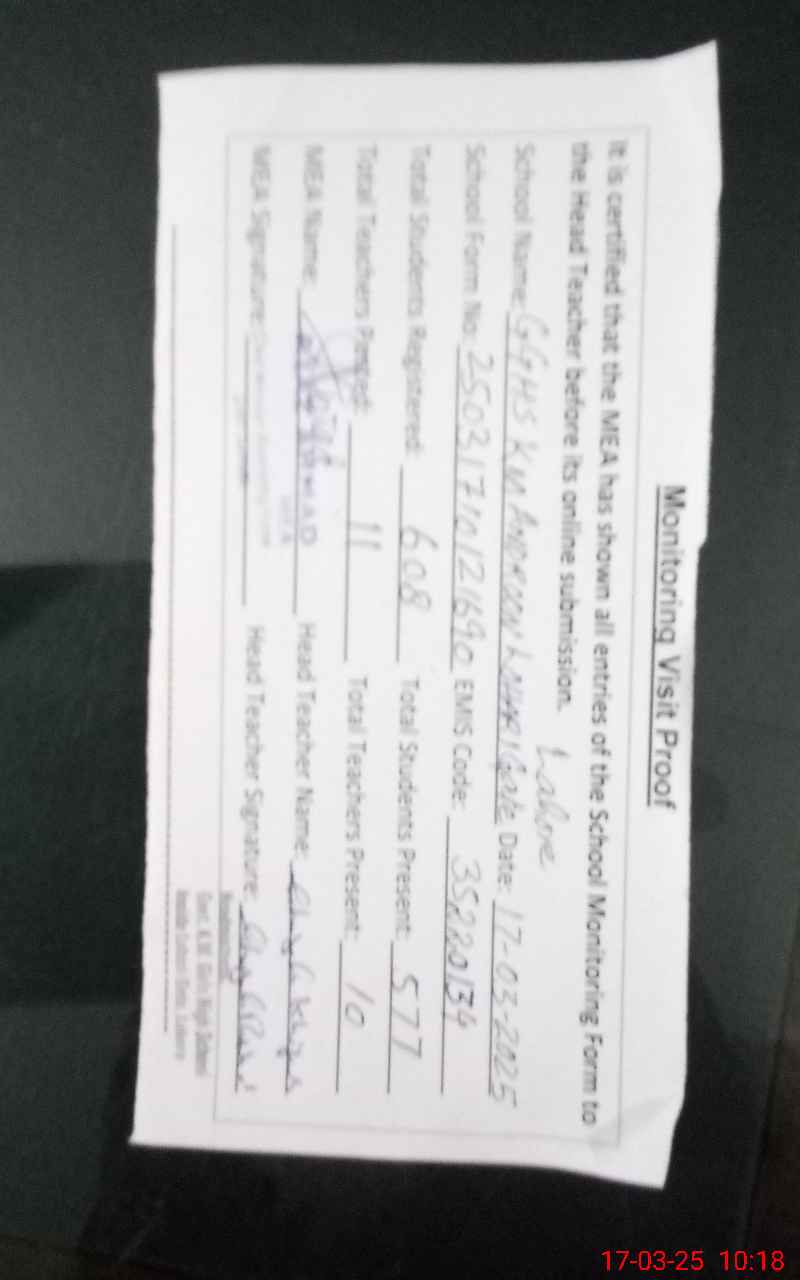 Monitoring Visit Proof
It is certified that the MEA has shown all entries of the School Monitoring Form to
the Head Teacher before its online submission.
Lahore
School Name: GGHS KM Date: 17-03-2025
School Form No: 25031710121690 EMIS Code: 35220134
Total Students Registered: 608 Total Students Present: 577
Total Teachers Posted: 11 Total Teachers Present: 10
MEA Name: Head Teacher Name:
MEA Signature: Head Teacher Signature:
Girls High School
17-03-25 10:18